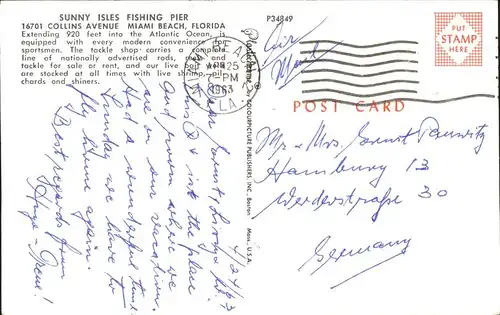 SUNNY ISLES FISHING PIER
16701 COLLINS AVENUE MIAMI BEACH, FLORIDA
Extending 920 feet into the Atlantic Ocean, is
equipped with every modern convenience for
sportsmen. The tackle shop carries a complete
line of nationally advertised rods, reels and
tackle for sale or rent, and our live bait
are stocked at all times with live shrimp, pil
chards and shiners.
P34849
Air
Mail
PUT
STAMP
HERE
APR 25
7-PM
1963
FLA
POST CARD
Plastichrome ® by COLOURPICTURE PUBLISHERS, INC., Boston Mass., U.S.A.
4/24/63
is the place
and room where we
are on our vacation.
Had a wonderful time.
Sunday we have to
fly home again.
Best regards from
Hugo - Irene!
Mr + Mrs Ernst
Hamburg 13
Werderstraße 30
Germany